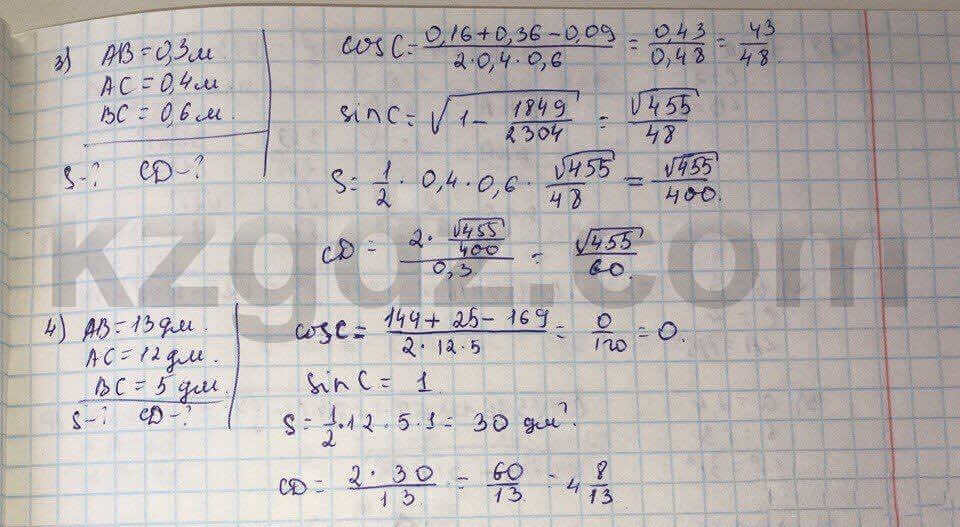 3) AB = 0,3 м
AC = 0,4 м.
BC = 0,6 м.
S-? CD-?
cos C = (0,16 + 0,36 - 0,09)/(2·0,4·0,6) = 0,43/0,48 = 43/48.
sin C = √(1 - 1849/2304) = √455/48
S = 1/2 · 0,4 · 0,6 · √455/48 = √455/400.
CD = (2 · √455/400)/0,3 = √455/60.
kzgdz.com
4) AB = 13 дм.
AC = 12 дм.
BC = 5 дм.
S-? CD-?
cos C = (144 + 25 - 169)/(2·12·5) = 0/120 = 0.
sin C = 1
S = 1/2 · 12 · 5 · 1 = 30 дм².
CD = (2 · 30)/13 = 60/13 = 4 8/13